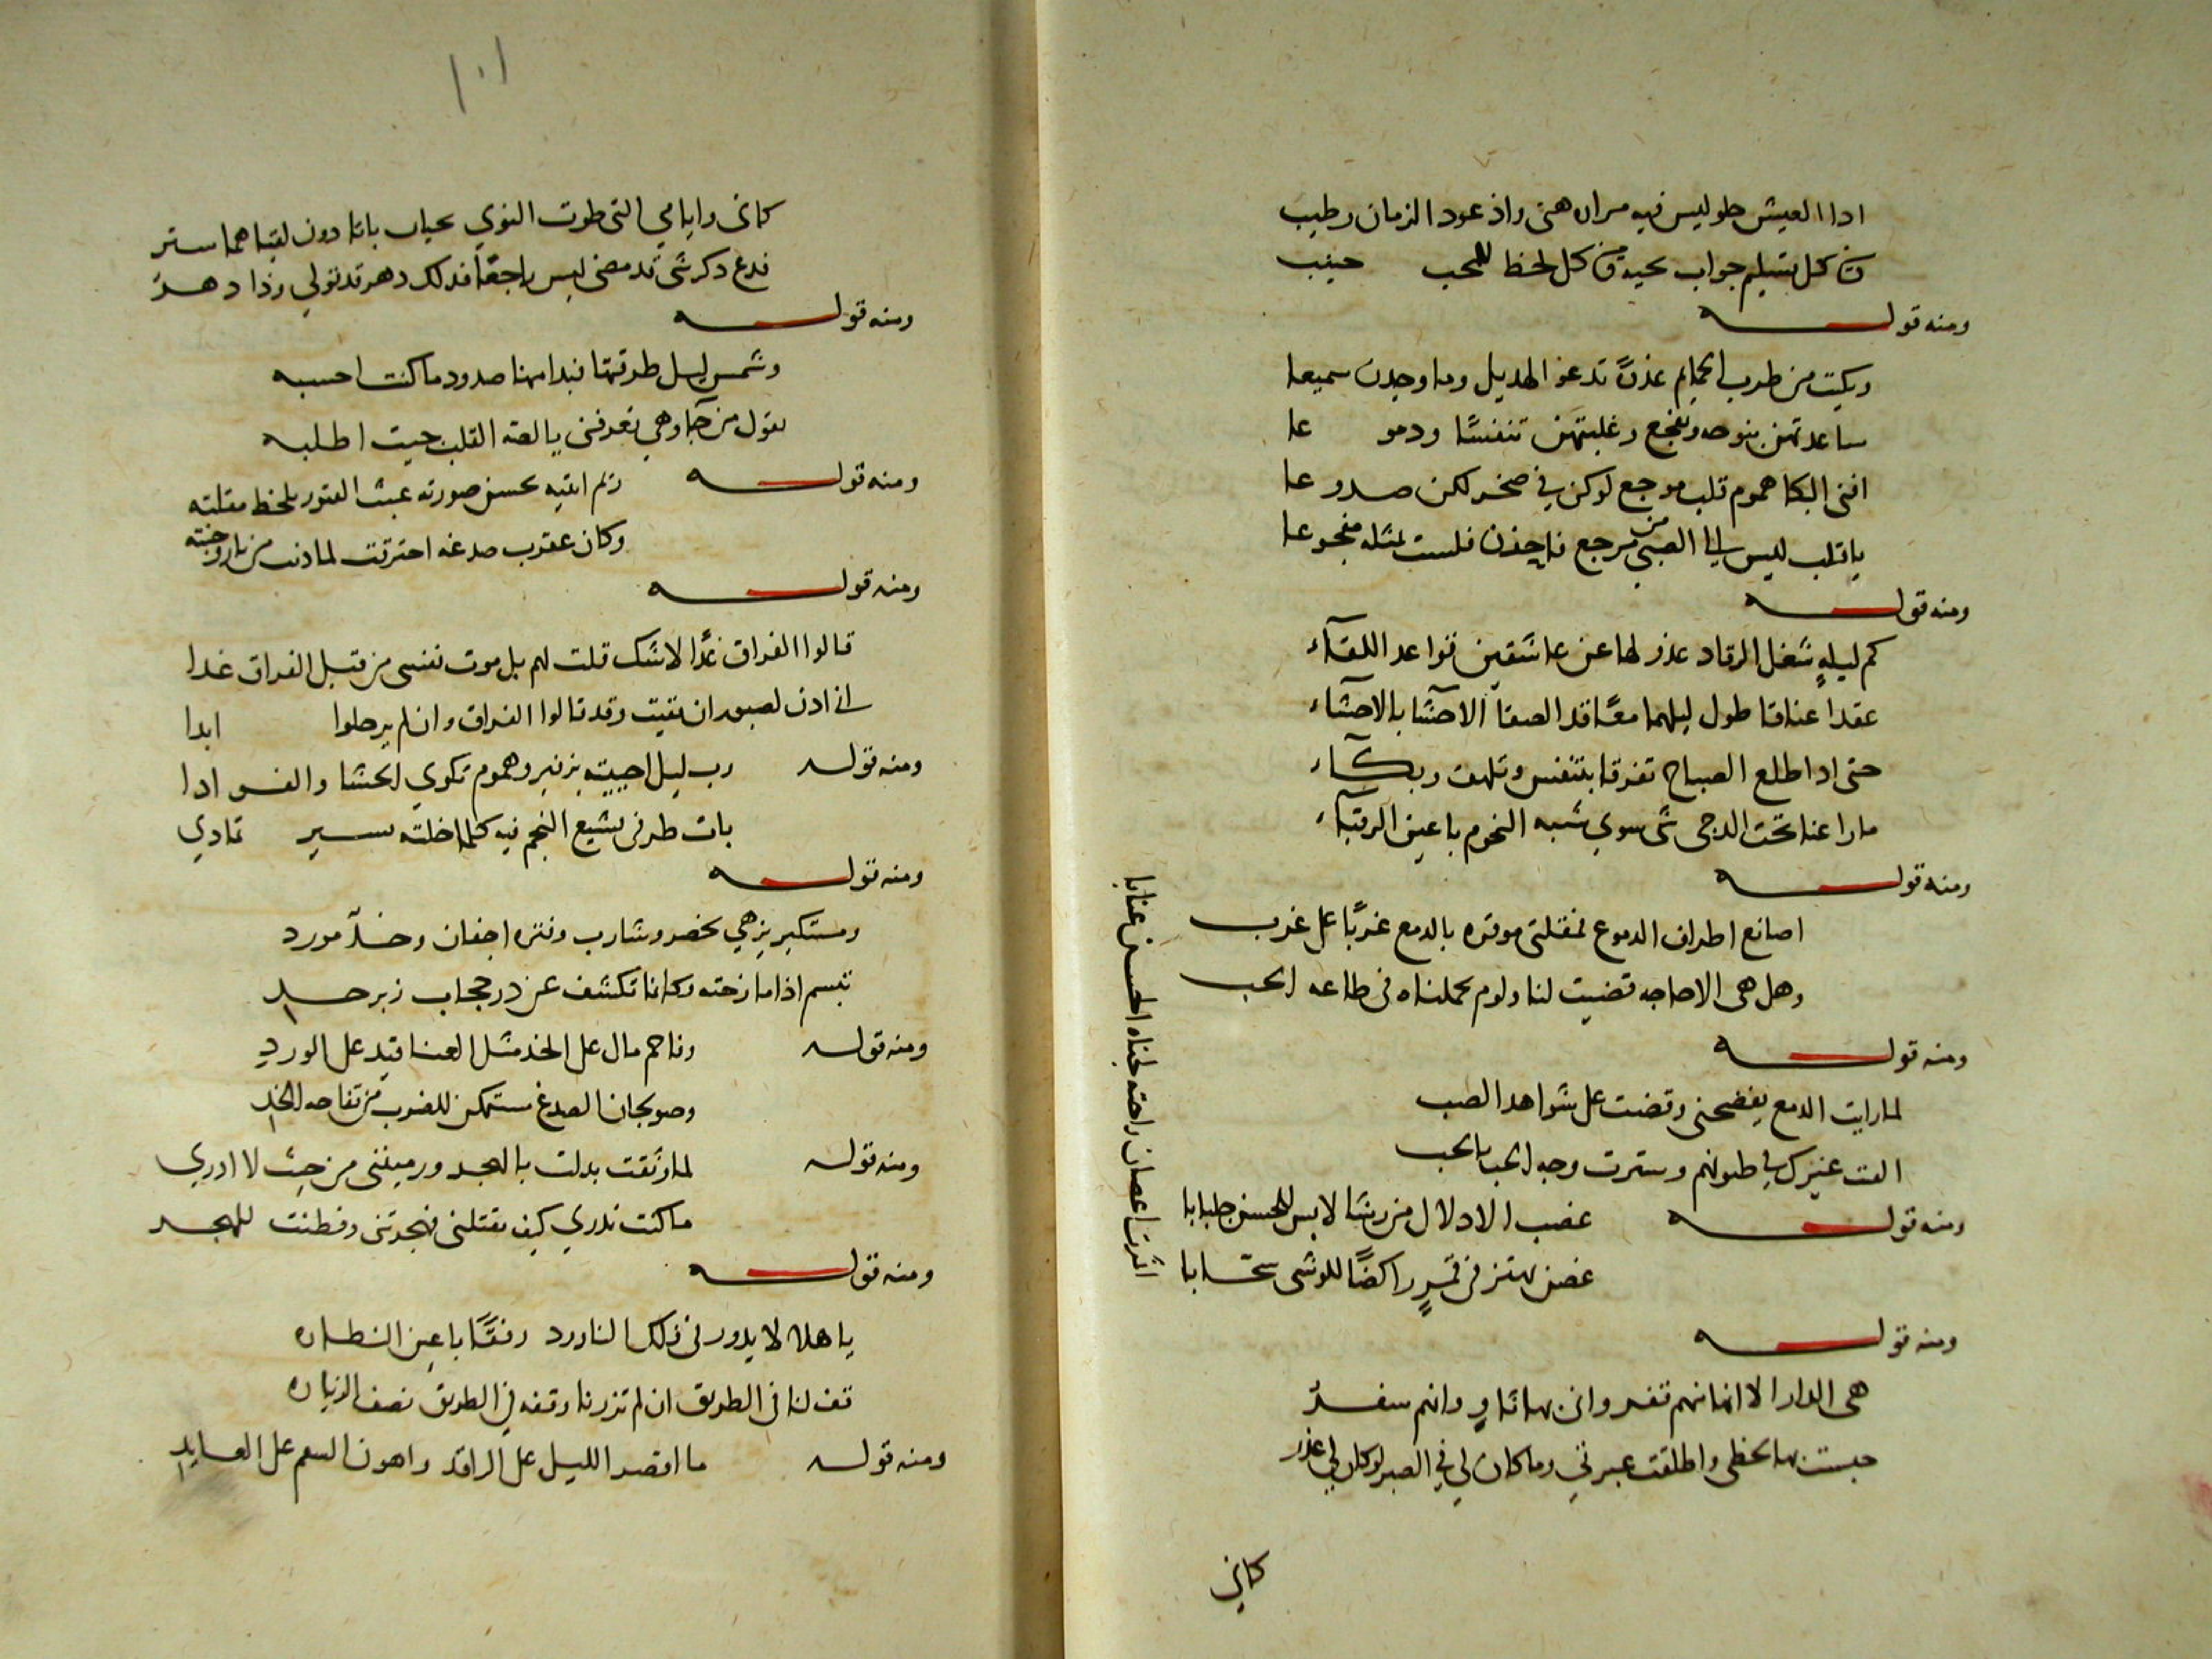 اذا العيش حلو ليس فيه مراره هنى واذ عود الزمان رطيب
كل تسليم جواب تحية كل لحظ للمحب حبيب
ومنه قوله
وبكيت من طرب الحمايم غدوة تدعو الهديل وما وجدن سميعا
ساعدتهن بنوحه وتفجع وغلبتهن تنفسًا ودموعا
افنى البكا هموم قلب موجع لو كن في صخر لكن صدوعا
يا قلب ليس الى الصبى من مرجع فاحزن فلست بمثله مفجوعا
ومنه قوله
كم ليلةٍ شغل الرقاد عذولها عن عاشقين تواعدا للقآء
عقدا عناقا طول ليلهما معًا قد الصقا الاحشآ بالاحشآء
حتى اذا طلع الصباح تفرقا بتنفس وتلهف وبكآء
ما راعنا تحت الدجى شى سوى شبه النجوم باعين الرقبآء
ومنه قوله
اصانع اطراف الدموع بمقلتى موقره بالدمع غربًا على غرب
وهل هى الا حاجه قضيت لنا ولوم تحملناه فى طاعه الحب
ومنه قوله
لما رايت الدمع يفضحنى وقضت على شواهد الصب
القت غيرك فى ظنونهم وسترت وجه الحب بالحب
ومنه قوله
غضب الادلال من رشا لابس للحسن جلبابا
غصن يهتز فى قمرٍ راكضًا للوشى سحّابا
اثمرت اغصان راحته لجناه الحسن عنابا
ومنه قوله
هى الدار الا انها منهم قفر وانى بها ثاوٍ وانهم سفرٌ
حبست بها لحظى واطلقت عبرتي وما كان لي في الصبر لو كان لي عذر
كاني
١٠١
كانى وايامي التى طوت النوي نجيان باتا دون لقياهما ستر
فدع ذكر شى قد مضى ليس راجعًا فذلك دهر قد تولي وذا دهرٌ
ومنه قوله
وشمس ليل طرقتها فبدا منها صدود ما كنت احسبه
تقول من جآ وهي تعرفنى يا لعنه القلب حيث اطلبه
ومنه قوله
ريم يتيه بحسن صورته عبث الفتور بلحظ مقلته
وكان عقرب صدغه احترقت لما دنت من نار وجنته
ومنه قوله
قالوا الفراق غدًا لا شك قلت لهم بل موت نفسى من قبل الفراق غدا
انى اذن لصبور ان بقيت وقد قالوا الفراق وان لم يرحلوا ابدا
ومنه قوله
رب ليل احييته بزفير وهموم تكوي الحشا والفوادا
بات طرفى يشيع النجم فيه كلما خلته يسير تمادي
ومنه قوله
ومستكبر يزهي بخضر وشارب وفتره اجفان وخدّ مورد
تبسم اذا مازحته وكانما تكشف عن در حجاب زبرجد
ومنه قوله
وفاحم مال على الخد مثل العناقيد على الورد
وصولجان الصدغ مستمكن للضرب من تفاحه الخد
ومنه قوله
لما وثقت بدلت بالهجر ورميتنى من حيث لا ادري
ما كنت تدري كيف تقتلنى فهجرتنى وفطنت للهجر
ومنه قوله
يا هلالا يدور فى فلك الناورد رفقًا باعين النظاره
قف لنا فى الطريق ان لم تزرنا وقفه في الطريق نصف الزياره
ومنه قوله
ما اقصر الليل على الراقد واهون السقم على العايد